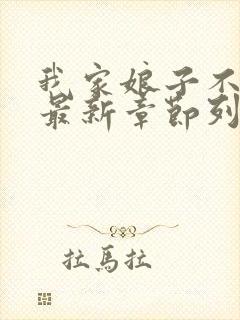 我家娘子不
最新章節列
拉馬拉